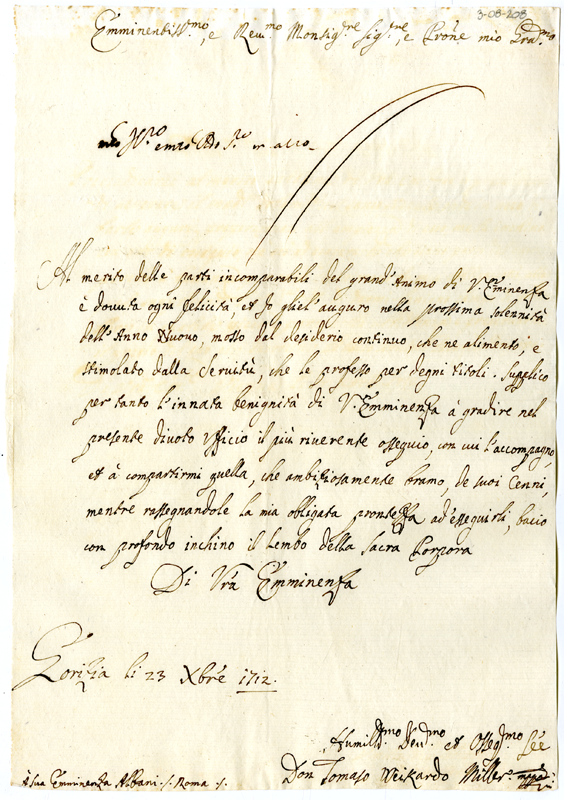 3-08-208
Emminentiss.mo, e Reu.mo Monsig.re Sig.re, e Prõne mio Gra.mo
Al merito delle parti incomparabili del grand'Animo di V. Eminenza
è douuta ogni felicità, et Io gliel'auguro nella prossima solennità
dell'Anno Nuouo, mosso dal desiderio continuo, che ne alimento, e
stimolato dalla Seruitù, che le professo per degni titoli. Supplico
per tanto l'innata benignità di V. Emminenza à gradire nel
presente diuoto Vfficio il più riuerente osseguio, con cui l'accompagno,
et à compartirmi quella, che ambiziosamente bramo, de suoi Cenni,
mentre rassegnandole la mia obligata prontezza ad'esseguirli, bacio
con profondo inchino il Lembo della Sacra Porpora
Di Vrã Emminenza
Gorizia li 23 Xbrẽ 1712.
Humill.mo Deu.mo et Osseq.mo
à sua Emminenza Albani ./. Roma ./.
Don Tomaso Weikardo Miller